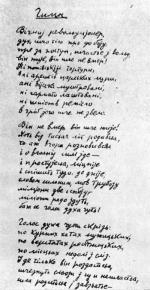 Гимн.
Вічний революціонер,
дух, що тіло рве до бою,
рве за поступ, щастє й волю,
він жиє, він ще не вмер!
Ні попівськиї тортури,
ні царські мури,
ані війська муштровані,
ні гармати лаштовані,
ні шпіонське ремесло
В гріб його ще не звело.
Він не вмер, він ще жиє!
Хоч від тисяч літ родився,
та аж вчора розповився
і о власній силі йде.
і простується, міцніє
і спішить туди, де дніє;
словом сильним, мов трубою
міліони зве з собою,
міліони радо йдуть,
бо се голос духа чуть.
Голос духа чути скрізь:
по курних хатах мужицьких,
по верстатах ремісницьких,
по місцях недолі й сліз.
І де тільки він роздасться,
щезнуть сльози, сум нещастя,
сила родиться й завзяттє